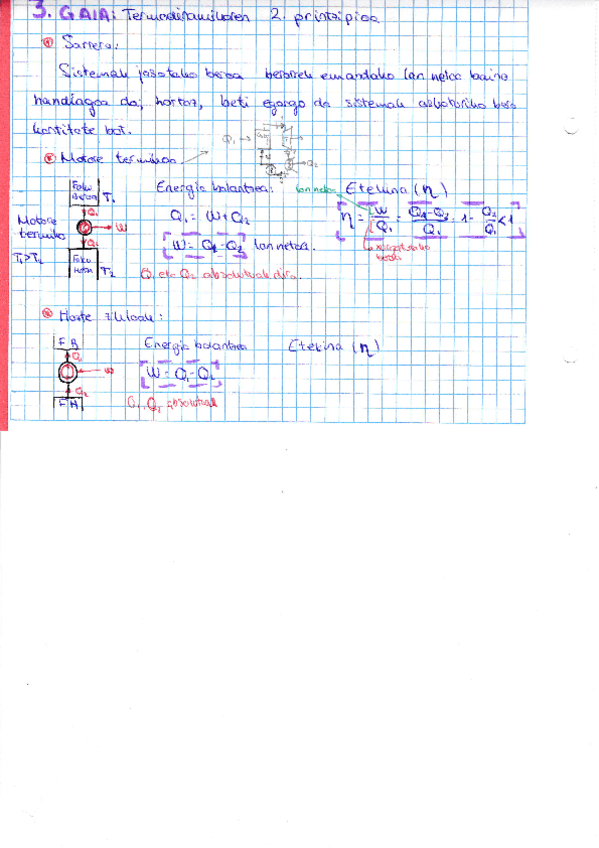 3. GAIA: Termodinamikaren 2. printzipioa
Sarrera:
Sistemak jasotako beroa berorrek emandako lan netoa baino
handiagoa da; hortaz, beti egongo da sistemak askatutako bero
kantitate bat.
Q1 Q2
Motore termikoa
Foku Beroa T1
Q1
Motore termiko
W
Q2
T1>T2
Foku Hotza T2
Energia balantzea:
Q1 = W+Q2
W = Q1-Q2 lan netoa.
Q1 eta Q2 absolutuak dira.
lan netoa
Etekina (η)
η = W/Q1 = Q1-Q2/Q1 = 1- Q2/Q1 < 1
beroa
Hozte zikloak:
F B
Q1
W
Q2
F H
Energia balantzea
W = Q1-Q2
Q1, Q2 absolutuak
Etekina (η)